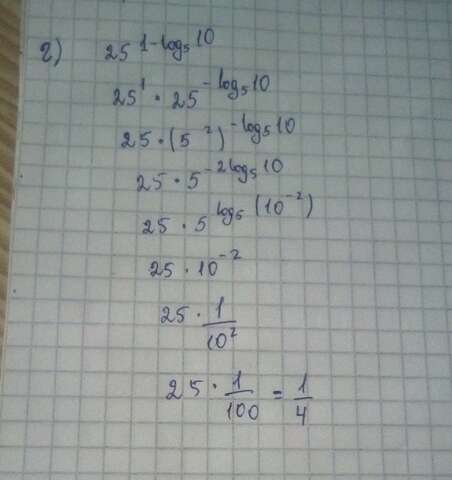 г) 25^{1-log₅10}
25¹ · 25^{-log₅10}
25 · (5²)^{-log₅10}
25 · 5^{-2log₅10}
25 · 5^{log₅(10⁻²)}
25 · 10⁻²
25 · 1/10²
25 · 1/100 = 1/4